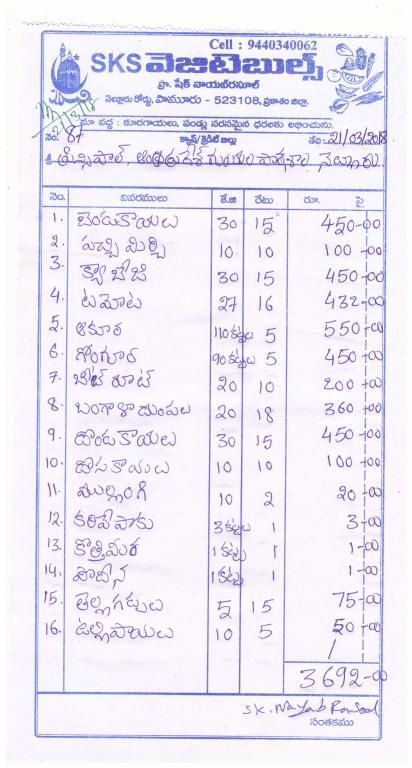 Cell : 9440340062
SKS వెజిటెబుల్స్
ప్రొ. షేక్ నాయబ్‌రసూల్
నెల్లూరు రోడ్డు, పామూరు - 523108, ప్రకాశం జిల్లా.
మా వద్ద : కూరగాయలు, పండ్లు సరసమైన ధరలకు లభించును.
నెం. 87 క్యాష్/క్రెడిట్ బిల్లు తేది: 21/03/2018
శ్రీ ప్రిన్సిపాల్, ఆంధ్రప్రదేశ్ గురుకుల పాఠశాల
నెం. వివరములు కే.జి రేటు రూ. పై
1. బెండకాయలు 30 15 450-00
2. పచ్చి మిర్చి 10 10 100-00
3. క్యాబేజి 30 15 450-00
4. టమోట 27 16 432-00
5. ఆకూర 110 కట్టలు 5 550-00
6. గోంగూర 90 కట్టలు 5 450-00
7. బీట్ రూట్ 20 10 200-00
8. బంగాళాదుంపలు 20 18 360-00
9. దొండకాయలు 30 15 450-00
10. దోసకాయలు 10 10 100-00
11. ముల్లంగి 10 2 20-00
12. కరివేపాకు 3 కట్టలు 1 3-00
13. కొత్తిమీర 1 కట్ట 1 1-00
14. పొదీన 1 కట్ట 1 1-00
15. తెల్లగడ్డలు 5 15 75-00
16. ఉల్లిపాయలు 10 5 50-00
3692-00
SK. Nayab Rasool
సంతకము